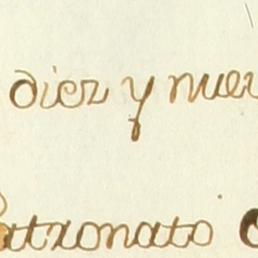 diez y nuev
atronato